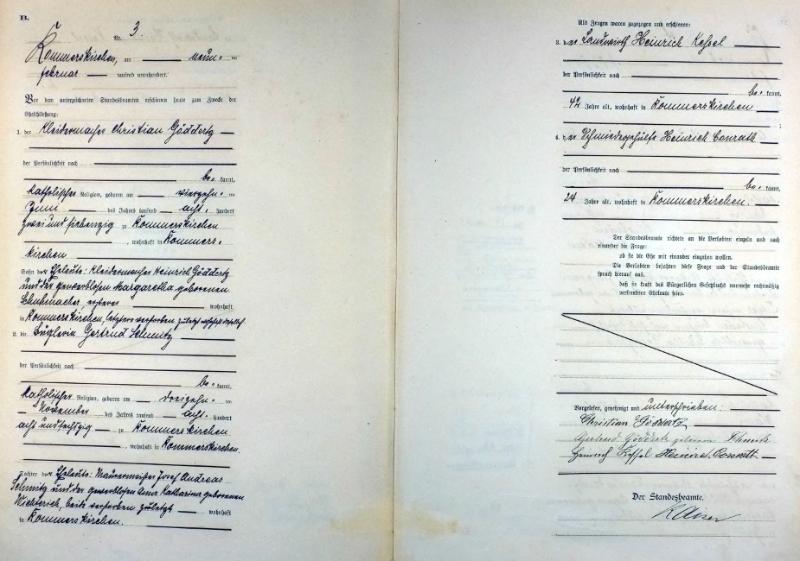 B.
Nr. 3.
Rommerskirchen, am neun-ten
Februar tausend neunhundert
Vor dem unterzeichneten Standesbeamten erschienen heute zum Zweck der
Eheschließung:
1. der Kleidermacher Christian Göddertz
der Persönlichkeit nach
be-kannt,
katholischer Religion, geboren am vierzehn-ten
Juni des Jahres tausend acht-hundert
zwei und siebenzig zu Rommerskirchen
, wohnhaft in Rommers-
kirchen
Sohn der Eheleute: Kleidermacher Heinrich Göddertz
und der gewerblosen Margaretha geborenen
Schuhmacher, ersterer wohnhaft
in Rommerskirchen, letztere verstorben zuletzt wohnhaft daselbst
2. die Büglerin Gertrud Schmitz
der Persönlichkeit nach
be-kannt,
katholischer Religion, geboren am dreizehn-ten
November des Jahres tausend acht-hundert
acht und sechszig zu Rommerskirchen
, wohnhaft in Rommerskirchen.
Tochter der Eheleute: Maurermeister Josef Andreas
Schmitz und der gewerblosen Anna Katharina geborenen
Wichterich, beide verstorben zuletzt wohnhaft
in Rommerskirchen.
Als Zeugen waren zugezogen und erschienen:
3. der Landwirth Heinrich Kessel
der Persönlichkeit nach
be-kannt,
42 Jahre alt, wohnhaft in Rommerskirchen
;
4. der Schmiedegehülfe Heinrich Conrath
der Persönlichkeit nach
be-kannt,
24 Jahre alt, wohnhaft in Rommerskirchen.
Der Standesbeamte richtete an die Verlobten einzeln und nach
einander die Frage:
ob sie die Ehe mit einander eingehen wollen.
Die Verlobten bejahten diese Frage und der Standesbeamte
sprach hierauf aus,
daß sie kraft des Bürgerlichen Gesetzbuchs nunmehr rechtmäßig
verbundene Eheleute seien.
Vorgelesen, genehmigt und unterschrieben:
Christian Göddertz
Gertrud Göddertz geborene Schmitz
Heinrich Kessel Heinrich Conrath
Der Standesbeamte.